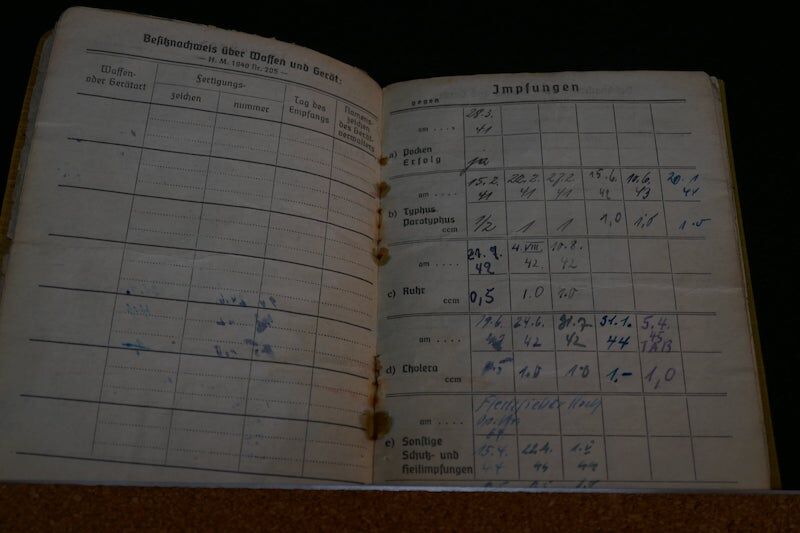 Besitznachweis über Waffen und Gerät:
— H. M. 1940 Nr. 205 —
Waffen-
oder Gerätart
Fertigungs-
zeichen
nummer
Tag des
Empfangs
Namens-
zeichen
des Gerät-
verwalters
Impfungen
gegen
28.3.
am . . . . 41
a) Pocken
Erfolg ja
15.2. 22.2. 27.2. 15.6. 10.6. 20.1
am . . . . 41 41 41 42 43 44
b) Typhus
Paratyphus
ccm 1/2 1 1 1,0 1,0 1.0
21.7. 4.VIII. 10.8.
am . . . . 42 42. 42
c) Ruhr
ccm 0,5 1.0 1.0
19.6. 24.6. 31.7. 31.1. 5.4.
am . . . . 42 42 44 45
TAB
d) Cholera
ccm 1.0 1.0 1.- 1,0
Fleckfieber
am . . . .
e) Sonstige
Schutz- und
Heilimpfungen
15.4. 22.4.
44 44 44